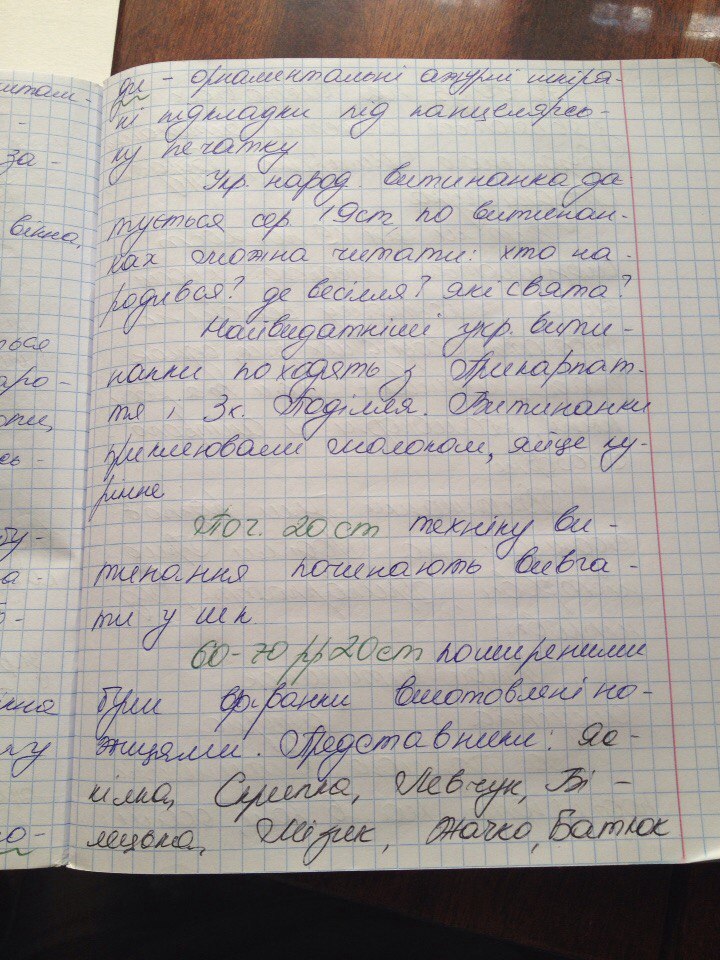 итам-
ди - орнаментальні ажурні шкіря-
-
ні підкладки під канцелярсь-
за-
ку печатку
Укр. народ. витинанка да-
вікна,
тується сер. 19ст по витинан-
ках можна читати: хто на-
родився? де весілля? які свята?
ться
Найвидатніші укр. вити-
аро-
нанки походять з Прикарпат-
тя, Зх. Поділля. Витинанки
сь-
приклеювали молоком, яйце ку-
ряче
Поч. 20 ст техніку ви-
бу-
тинання починають вивча-
а-
ти у шк.
60-70 рр 20ст поширеними
були вирізанки виготовлені но-
жицями. Представники:
Скрипка, Левчук, Бі-
лецька, Мізик, Жачко, Батюк